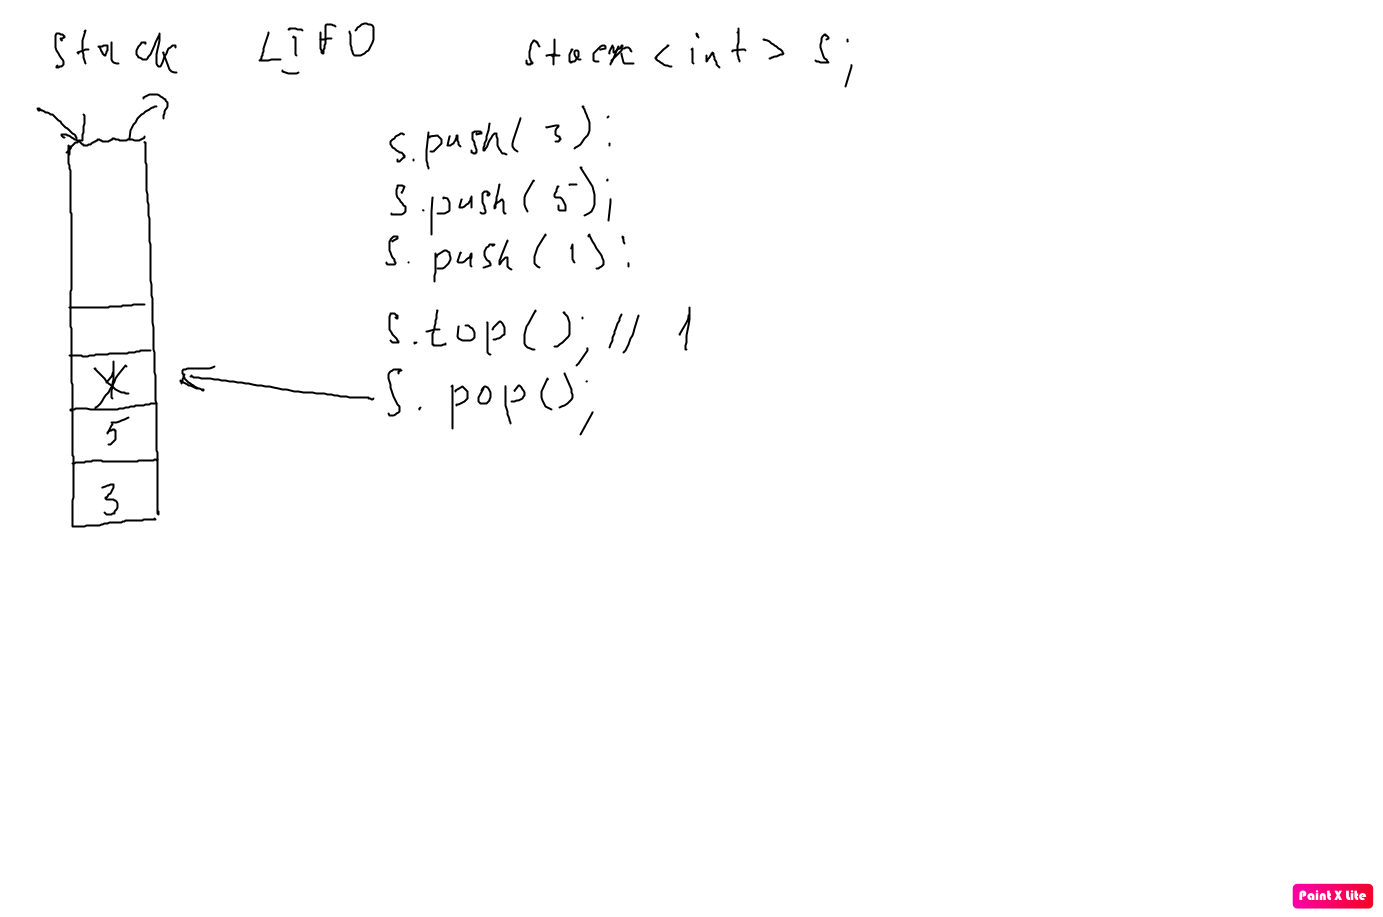 Stack LIFO stack <int> s;
s.push( 3 ):
s.push( 5 );
s. push ( 1 ):
s.top(); // 1
s. pop();
1
5
3
Paint X lite